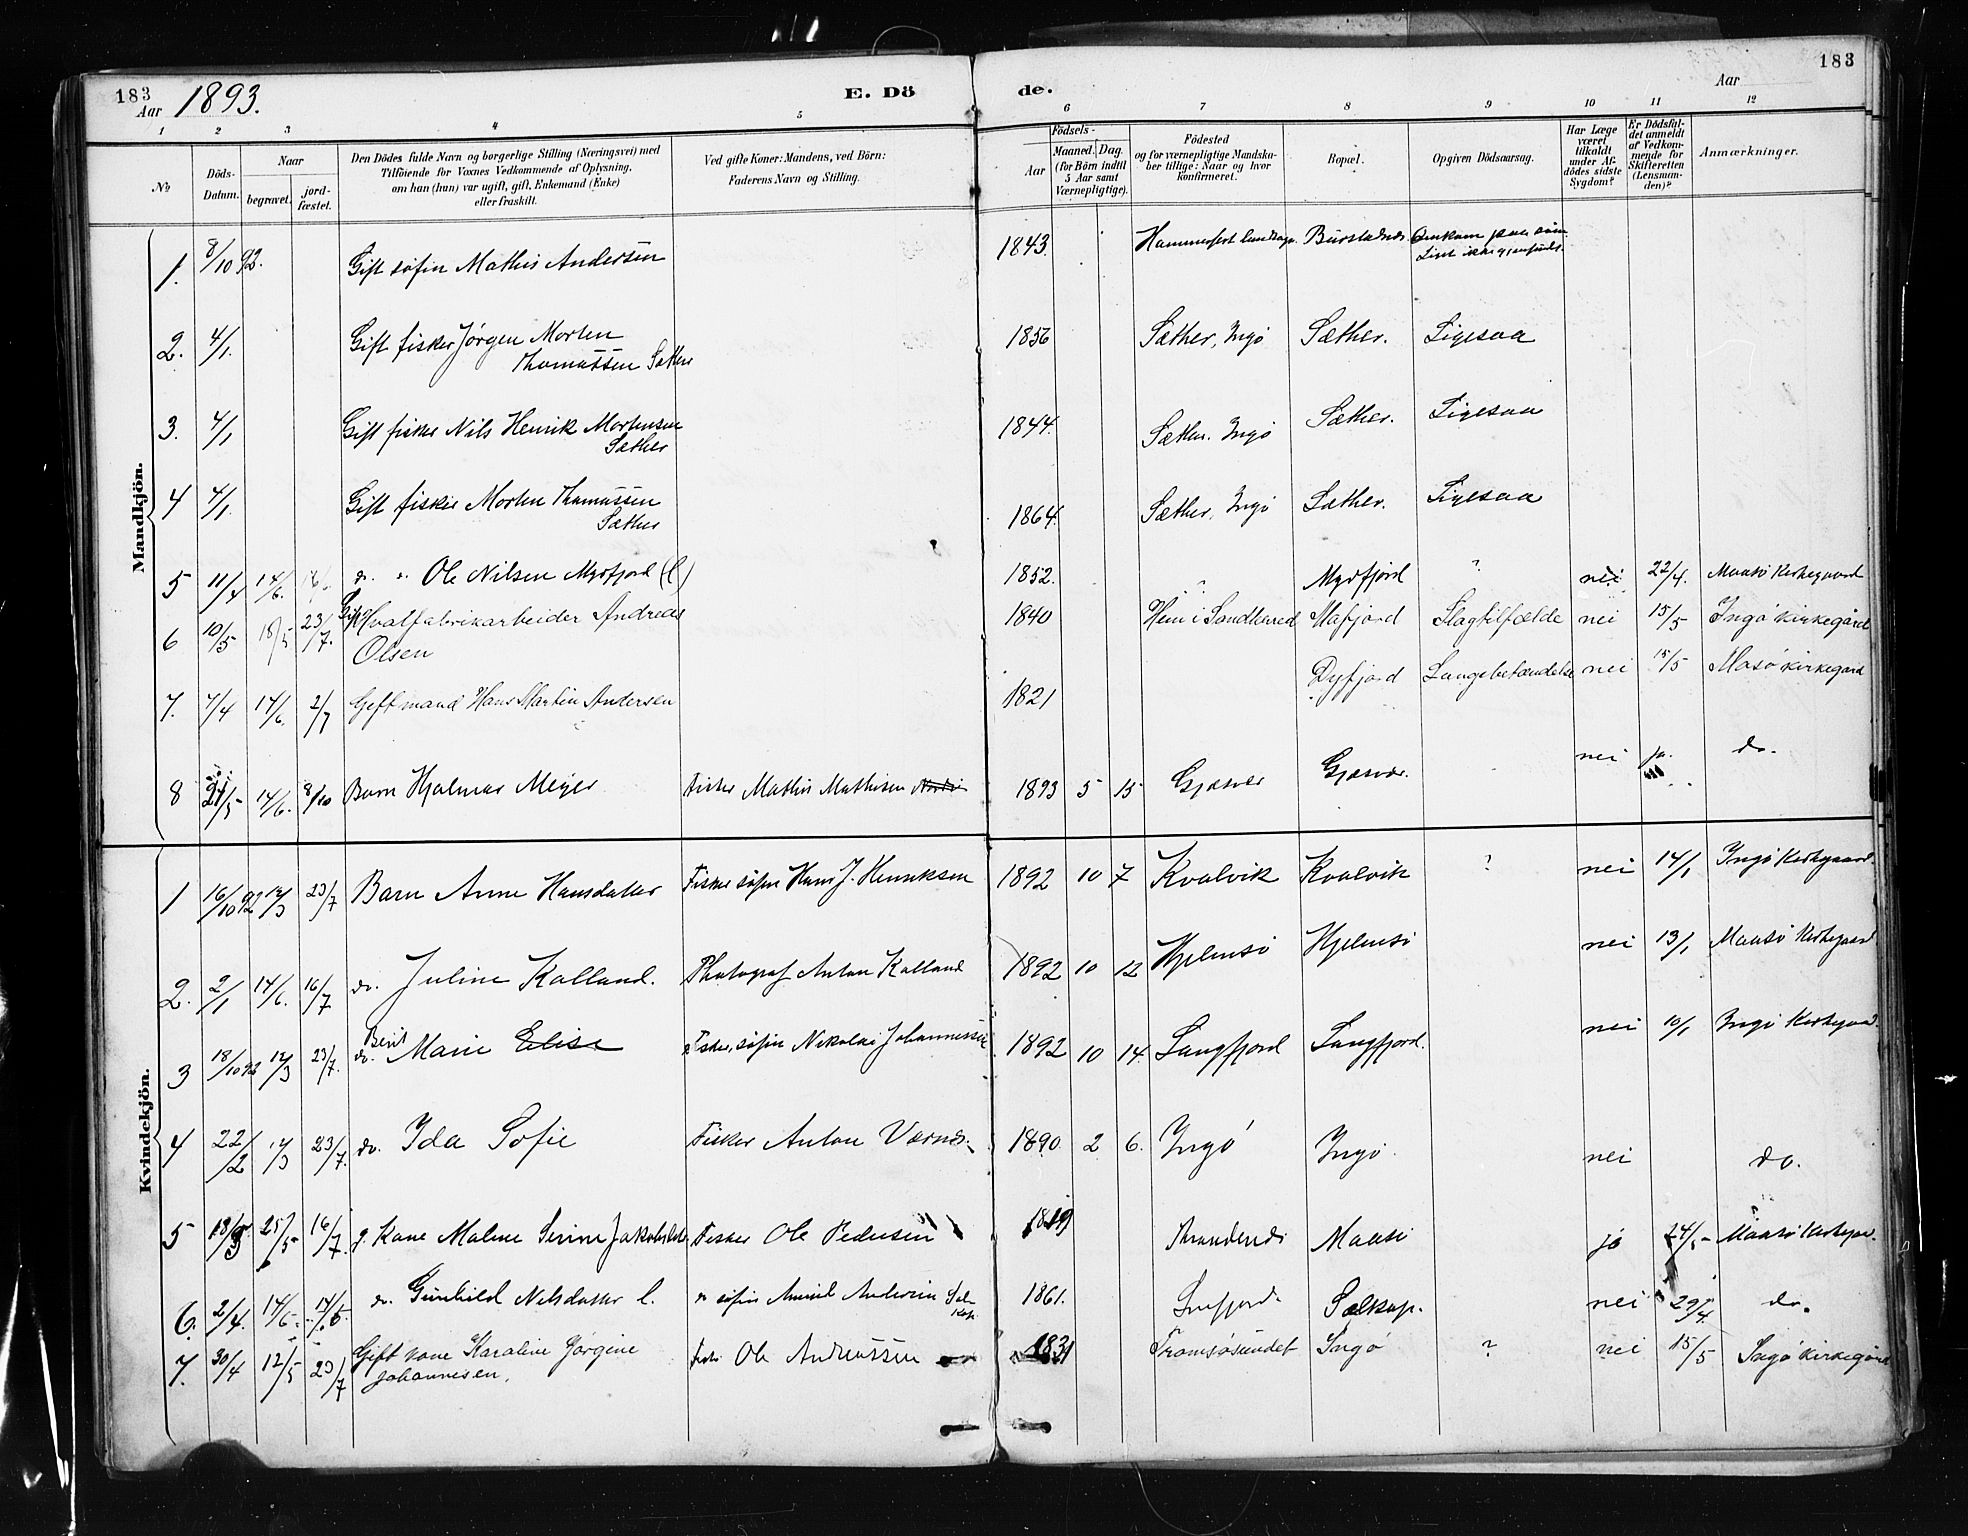 183 Aar 1893. E. Dö de. Aar 183
1 2 3 4 5 6 7 8 9 10 11 12
№ Döds-Datum. Naar begravet. jord-fæstet. Den Dödes fulde Navn og borgerlige Stilling (Næringsvei) med Tilföiende for Voxnes Vedkommende af Oplysning, om han (hun) var ugift, gift, Enkemand (Enke) eller fraskilt. Ved gifte Koner: Mandens, ved Börn: Faderens Navn og Stilling. Födsels- Aar Maaned. Dag. (for Börn indtil 5 Aar samt Værnepligtige). Födested og for værnepligtige Mandskaber tillige: Naar og hvor konfirmeret. Bopæl. Opgiven Dödsaarsag. Har Læge været tilkaldt under Afdödes sidste Sygdom? Er Dödsfaldet anmeldt af Vedkommende for Skifteretten (Lensmanden)? Anmærkninger.
Mandkjön.
1. 8/10 92. Gift söfin Mathis Andersen 1843. Hammerfest landsogn Omkom paa söen Liget ikke gjenfundet
2. 4/1. Gift fisker Jörgen Morten Thomassen Sæther 1856 Sæther, Ingö Sæther. Ligesaa
3. 4/1 Gift fisker Nils Henrik Mortensen Sæther 1844. Sæther. Ingö Sæther. Ligesaa
4 4/1. Gift fisker Morten Thomassen Sæther 1864. Sæther, Ingö Sæther. Ligesaa
5 11/4 14/6. do. " Ole Nilsen Myrfjord (l) 1852. ? Myrfjord ? nei 22/4. Maasö Kirkegaard
6 10/5 18/5 23/7. Gift Hvalfabrikarbeider Andreas Olsen 1840 Hem i Sandherred Mafjord Slagtilfælde nei 15/5 Ingö kirkegård
7. 7/4 14/6. 2/7 Gift mand Hans Martin Andersen 1821 Dyfjord Lungebetændelse nei 15/5 Måsö kirkegård
8 21/5 14/6. 8/10 Barn Hjalmar Meyer Fisker Mathis Mathisen 1893 5 15 Gjæsver Gjæsver. nei ja do.
Kvindekjön.
1 16/10 92 12/3 23/7 Barn Anne Hansdatter Fisker söfin Hans J. Henriksen 1892 10 7 Kvalvik Kvalvik ? nei 14/1 Ingö Kirkegaard
2. 2/1 14/6. 16/7 do. Juline Kalland. Photograf Anton Kalland 1892 10 12 Hjelmsö Hjelmsö nei 13/1 Maasö Kirkegaard
3 18/10 92 12/3 23/7. do. Berit Marie Elise Fisker, söfin Nikolai Johannessen 1892 10 14. Langfjord Langfjord. nei 10/1 Ingö Kirkegaard.
4 22/2 12/3 23/7. do. Ida Sofie Fisker Anton Værnes. 1890 2 6. Ingö Ingö. nei do.
5 25/5 16/7. g. Kone Malene Serine Fisker Ole Pedersen 1819 Maasö ja 24/5 Maasö Kirkegaard.
6. 2/4. 14/6. 14/6. do. Gunhild Nilsdatter l. " söfin Amund Andersen 1861. Snefjord. nei 29/4. do.
7. 30/4 12/5 23/7 Gift kone Karoline Jörgine Johannesen. Ole Andreassen 1831 Tromsösundet Ingö ? nei 15/5 Ingö kirkegård